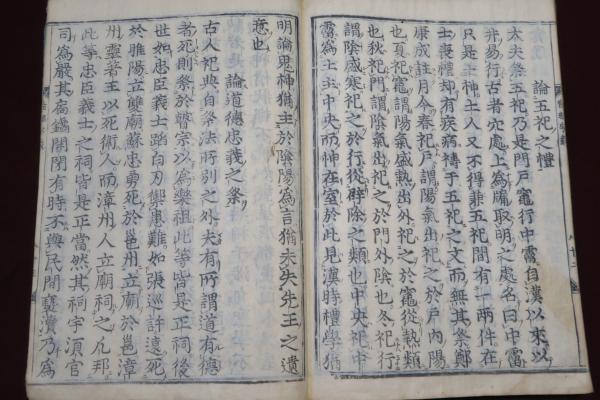 論五祀之禮
大夫祭五祀乃是門戶竈行中霤自漢以來以
井易行古者穴處上為牖取明之處名曰中霤
只是土神士人又不得兼五祀間有一兩件在
士喪禮却有疾病禱于五祀之文而無其祭鄭
康成註月令春祀戶謂陽氣出祀之於戶內陽
也夏祀竈謂陽氣盛熱出外祀之於竈從熱類
也秋祀門謂陰氣出祀之於門外陰也冬祀行
謂陰盛寒祀之於行從辟除之類也中央祀中
霤為土主中央而神在室於此見漢時禮學猶
明論鬼神猶主於陰陽為言猶未失先王之遺
意也
論道德忠義之祭
古人祀典自祭法所列之外又有所謂道有德
者死則祭於瞽宗以為樂祖此等皆是正祠後
世如忠臣義士蹈白刃禦患難如張巡許遠死
於睢陽立雙廟蘇忠勇死於邕州立廟於邕漳
州靈著王以死衛人而漳州人立廟祠之凡邦
此等忠臣義士之祠皆是正當然其祠宇須官
司為嚴其扃鑰開閉有時不與民間䙝瀆乃為